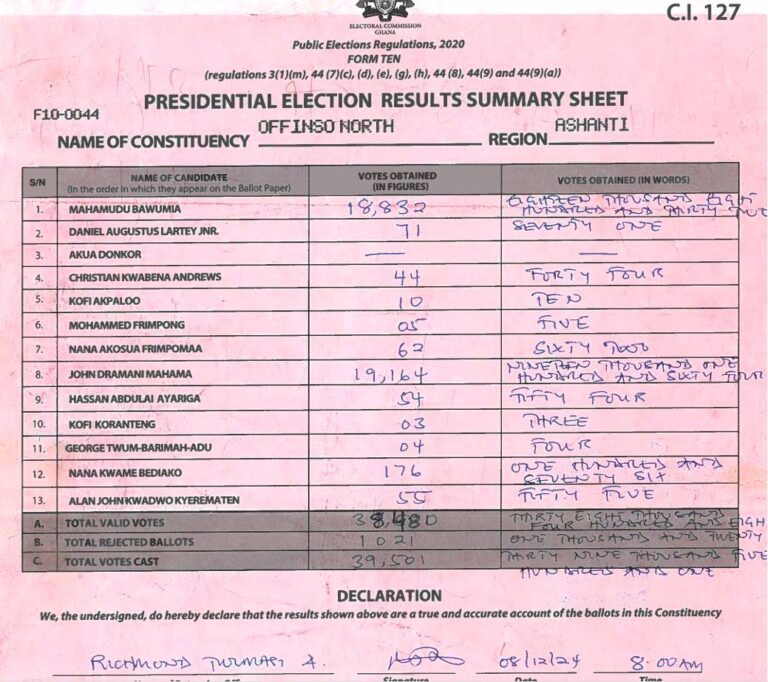 C.I. 127
ELECTORAL COMMISSION
GHANA
Public Elections Regulations, 2020
FORM TEN
(regulations 3(1)(m), 44 (7)(c), (d), (e), (g), (h), 44 (8), 44(9) and 44(9)(a))
PRESIDENTIAL ELECTION RESULTS SUMMARY SHEET
F10-0044
NAME OF CONSTITUENCY OFFINSO NORTH REGION ASHANTI
S/N NAME OF CANDIDATE (In the order in which they appear on the Ballot Paper) VOTES OBTAINED (IN FIGURES) VOTES OBTAINED (IN WORDS)
1. MAHAMUDU BAWUMIA 18,832 EIGHTEEN THOUSAND EIGHT HUNDRED AND THIRTY
2. DANIEL AUGUSTUS LARTEY JNR. 71 SEVENTY ONE
3. AKUA DONKOR —— ——
4. CHRISTIAN KWABENA ANDREWS 44 FORTY FOUR
5. KOFI AKPALOO 10 TEN
6. MOHAMMED FRIMPONG 05 FIVE
7. NANA AKOSUA FRIMPOMAA 62 SIXTY TWO
8. JOHN DRAMANI MAHAMA 19,164 NINETEEN THOUSAND ONE HUNDRED AND SIXTY FOUR
9. HASSAN ABDULAI AYARIGA 54 FIFTY FOUR
10. KOFI KORANTENG 03 THREE
11. GEORGE TWUM-BARIMAH-ADU 04 FOUR
12. NANA KWAME BEDIAKO 176 ONE HUNDRED AND SEVENTY SIX
13. ALAN JOHN KWADWO KYEREMATEN 55 FIFTY FIVE
A. TOTAL VALID VOTES 38,480 THIRTY EIGHT THOUSAND FOUR HUNDRED AND EIGH
B. TOTAL REJECTED BALLOTS 1021 ONE THOUSAND AND TWENTY
C. TOTAL VOTES CAST 39,501 THIRTY NINE THOUSAND FIVE HUNDRED AND ONE
DECLARATION
We, the undersigned, do hereby declare that the results shown above are a true and accurate account of the ballots in this Constituency
RICHMOND A. 08/12/24 8.00AM
Signature Date Time